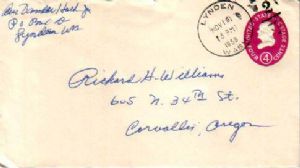 P.O. Box
Lynden Wn.
LYNDEN
NOV 18
PM
1958
WASH
UNITED STATES POSTAGE
4
CENTS
Richard H. Williams
605 N. 34th St.
Corvallis, Oregon